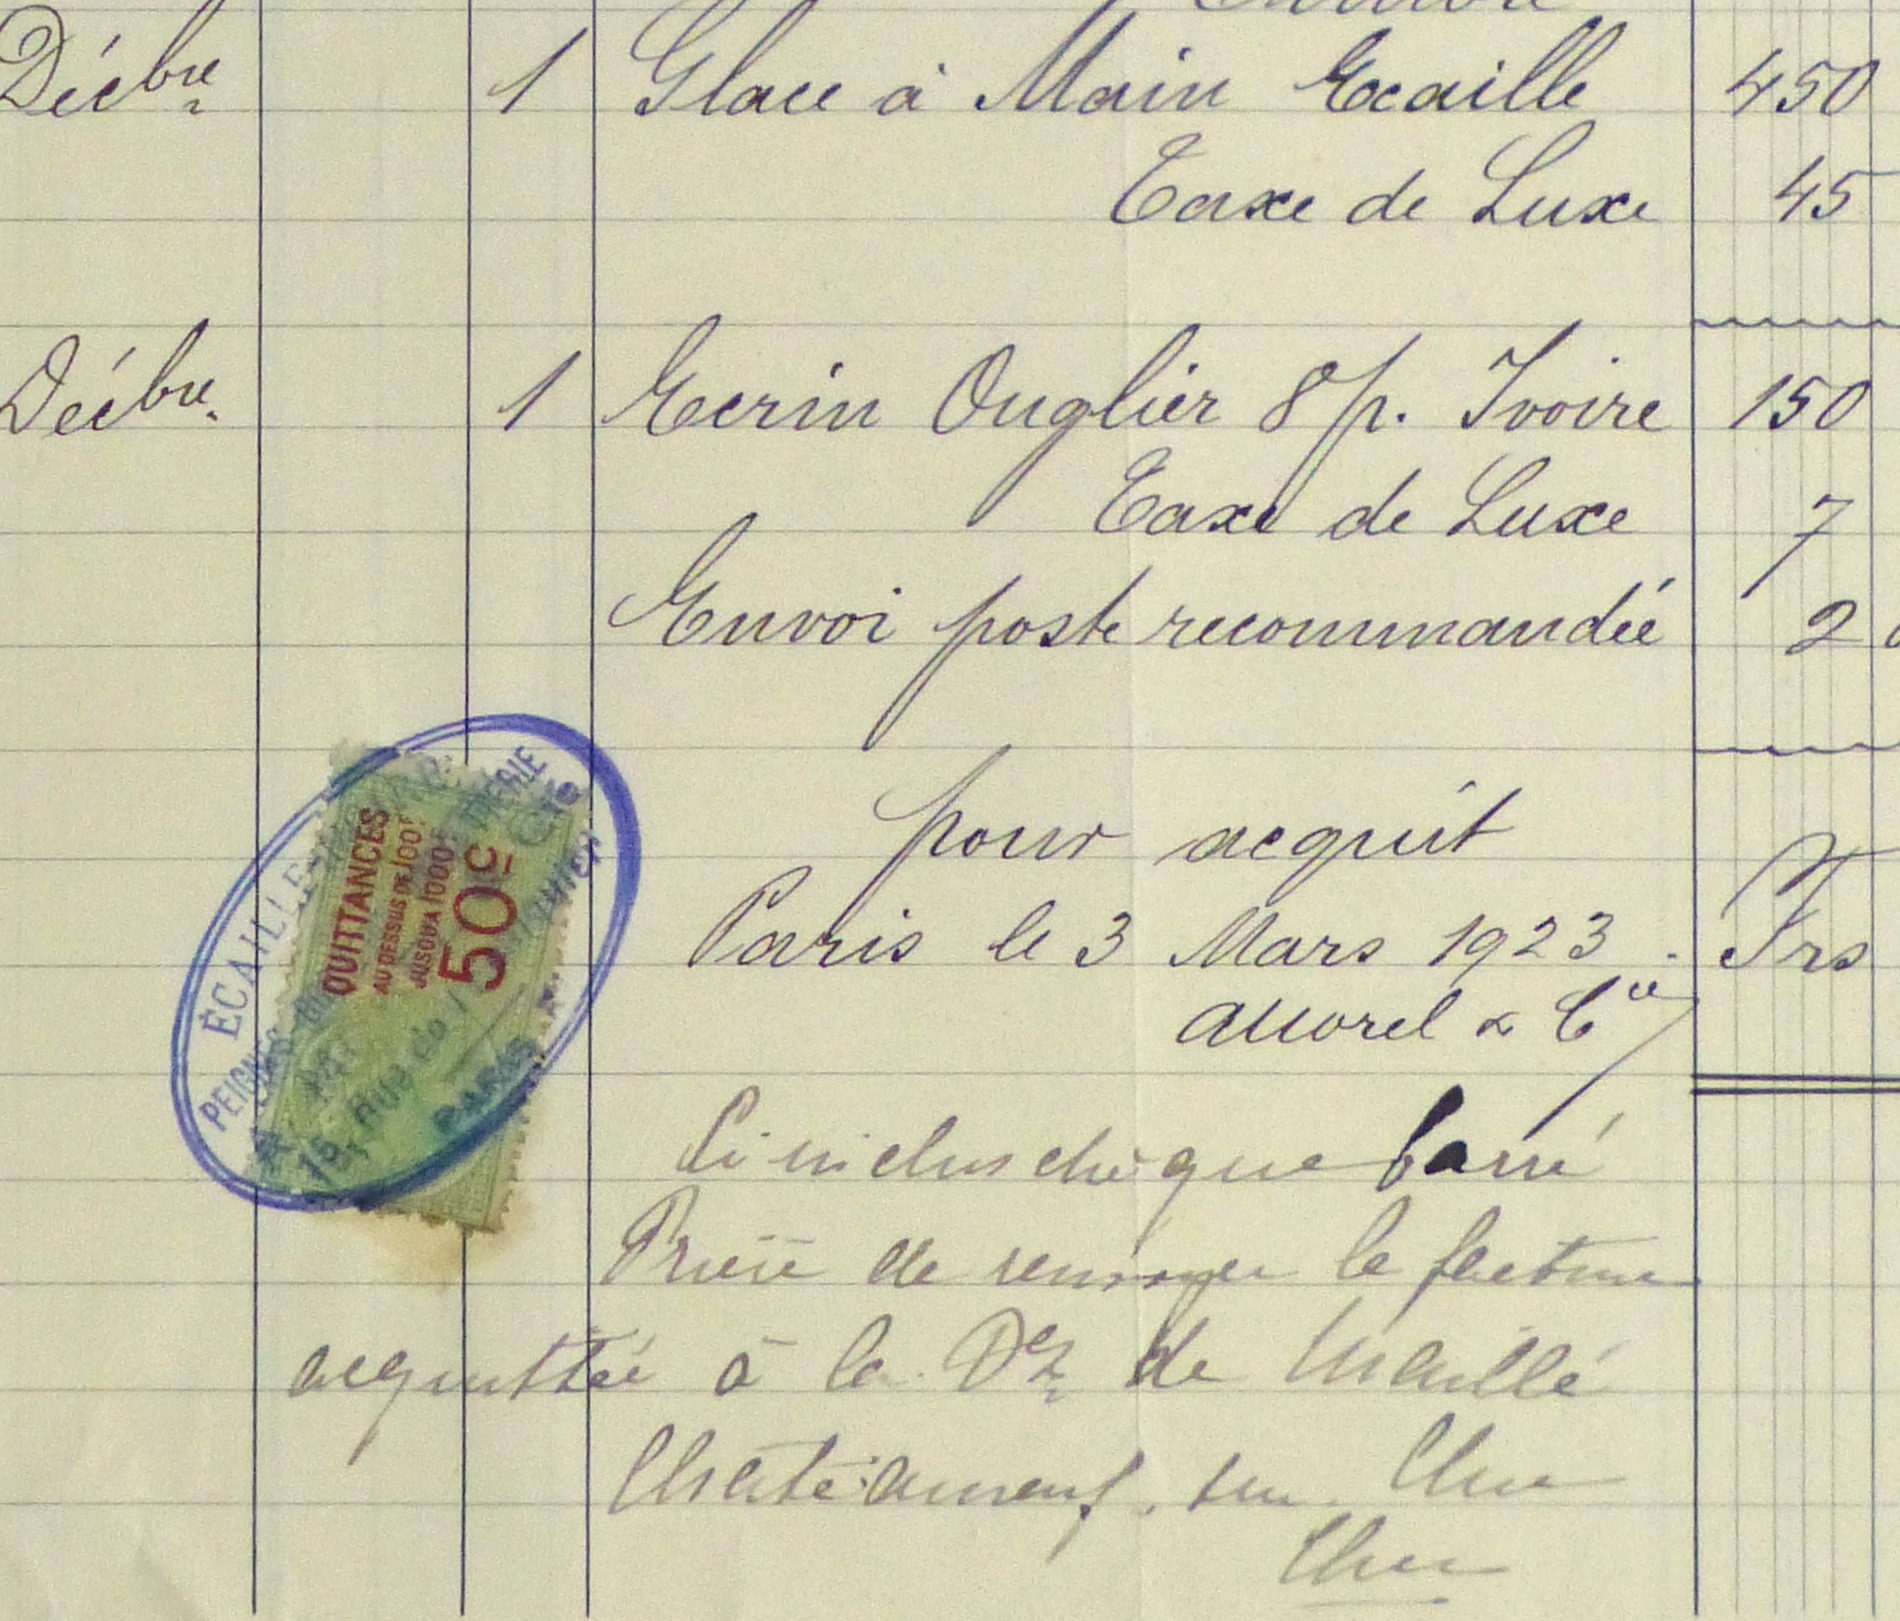 Décbre 1 Glace à Main Ecaille 450
Taxe de Luxe 45
Décbre 1 Ecrin Onglier 8 p. Ivoire 150
Taxe de Luxe 7
Envoi poste recommandée 2
pour acquit
Paris le 3 Mars 1923.
Frs
& Cie
QUITTANCES
AU DESSUS DE 100F
JUSQU'A 1000F
50c
ÉCAILLE
PEIGNES
15, Rue de
PARIS
Ci inclus chèque barré
Prière de renvoyer la facture
acquittée à la Dsse de Maillé
Châteauneuf. sur. Cher
Cher